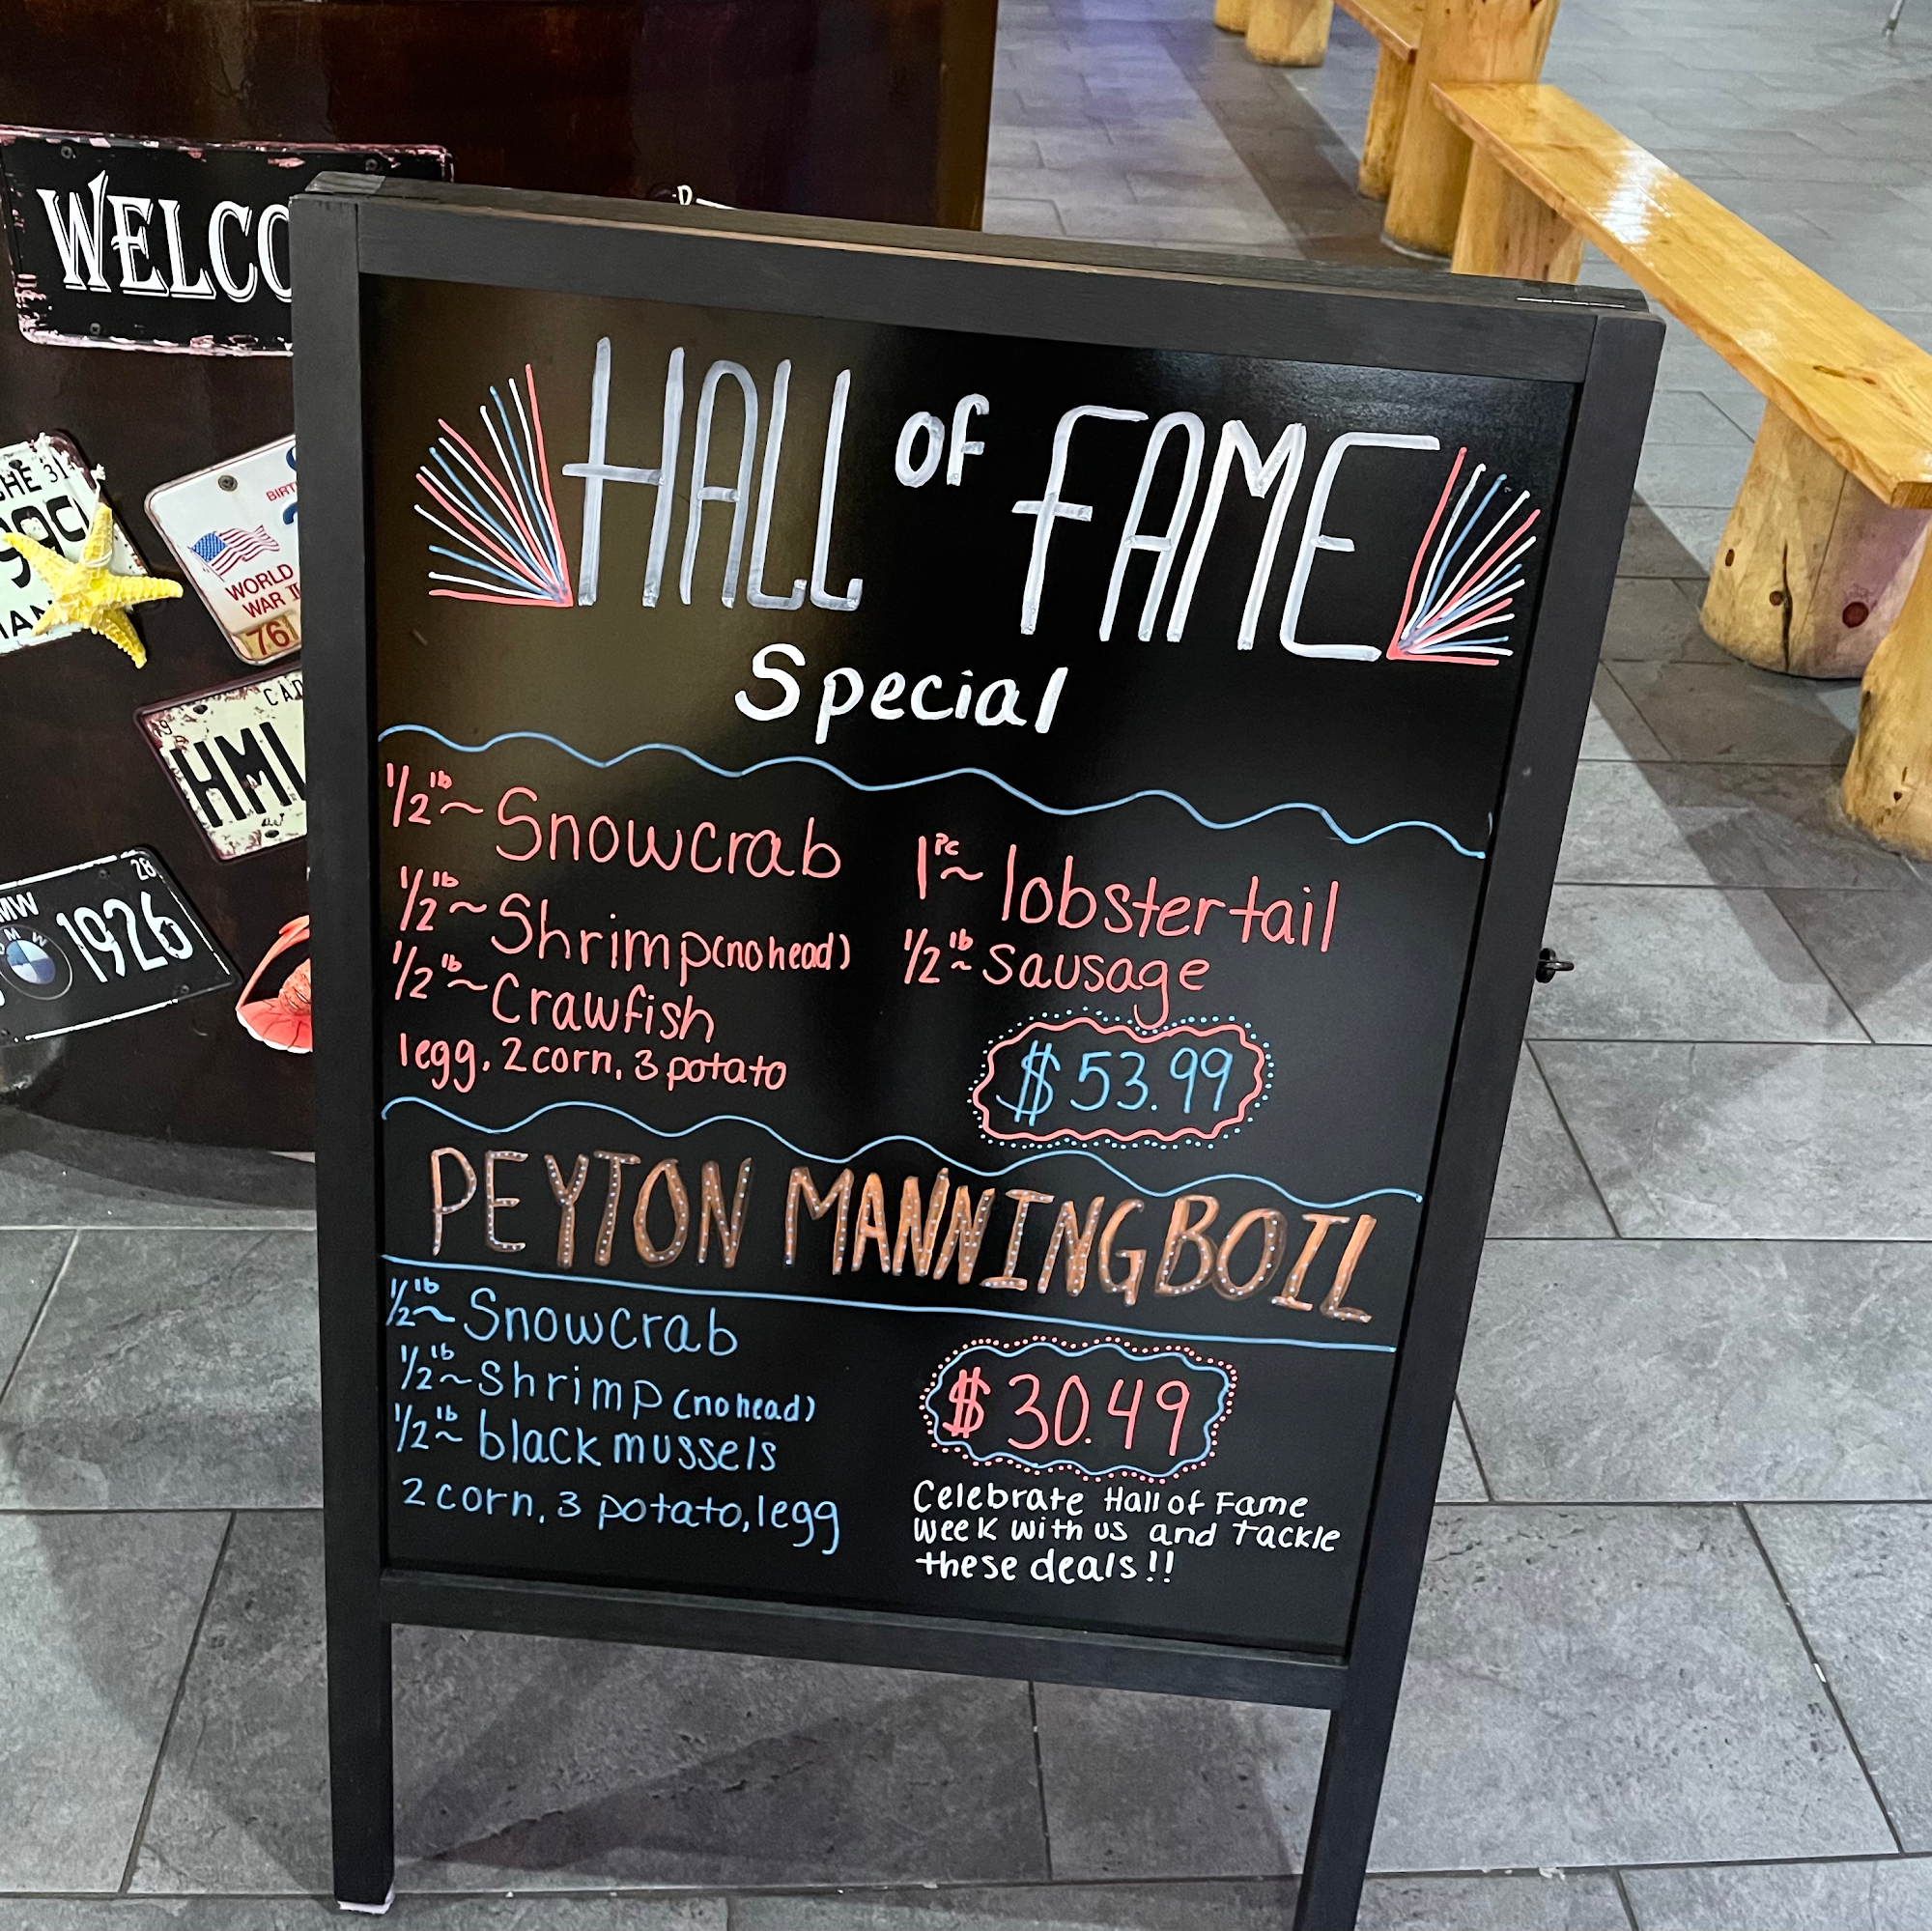 WELCO
HE 31
BIRT
WORLD
WAR II
76
CAD
HML
MW
28
BMW
1926
HALL OF FAME
Special
1/2 lb ~ Snowcrab
1/2 lb ~ Shrimp (no head)
1/2 lb ~ Crawfish
1egg, 2 corn, 3 potato
1 PC ~ lobster tail
1/2 lb ~ Sausage
$53.99
PEYTON MANNING BOIL
1/2 lb ~ Snowcrab
1/2 lb ~ Shrimp (no head)
1/2 lb ~ black mussels
2 corn, 3 potato, 1egg
$30.49
Celebrate Hall of Fame
week with us and tackle
these deals!!